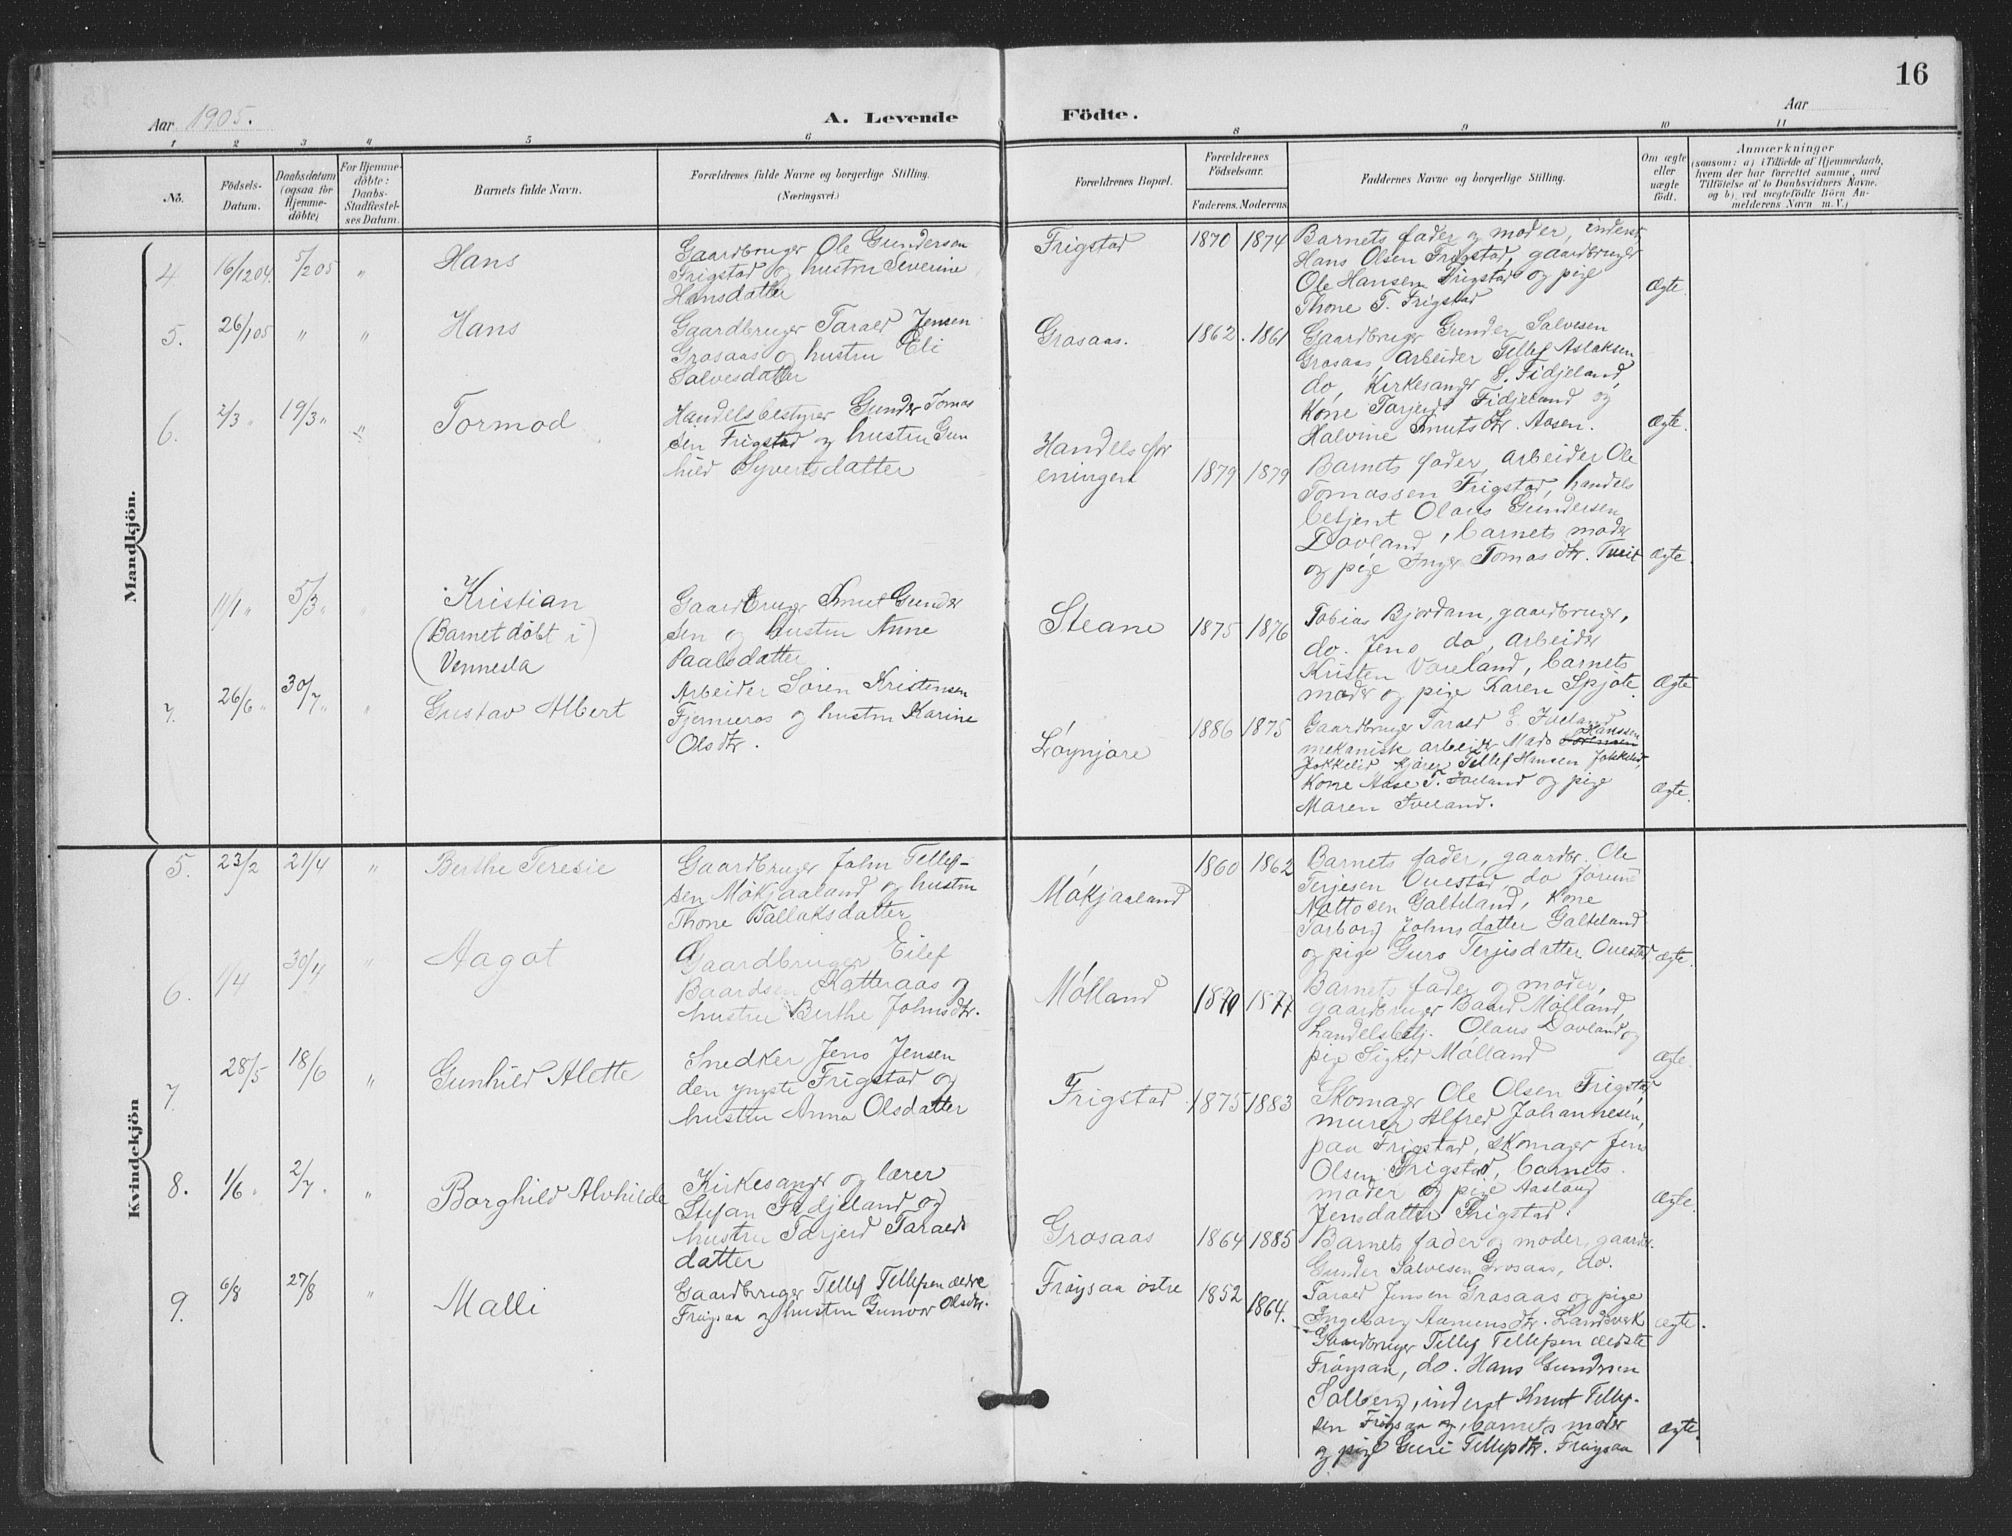 16
Aar 1905.
A. Levende
Födte.
Aar
1 2 3 4 5 6 8 9 10 11
No.
Födsels-
Datum.
Daabsdatum
(ogsaa for
Hjemme-
döbte)
For Hjemme-
döbte:
Daabs-
Stadfæstel-
ses Datum.
Barnets fulde Navn.
Forældrenes fulde Navne og borgerlige Stilling.
(Næringsvei.)
Forældrenes Bopæl.
Forældrenes
Födselsaar.
Faderens. Moderens
Faddernes Navne og borgerlige Stilling.
Om ægte
eller
uægte
født.
Anmærkninger
(saasom: a) i Tilfælde af Hjemmedaab,
hvem der har forrettet samme, med
Tilföielse af to Daabsvidners Navne,
og b) ved uægtefödte Börn An-
melderens Navn m. V.)
Mandkjön.
4 16/12 04. 5/2 05 " Hans
Gaardbruger Ole Gunderson
Frigstad og hustru Severine
Hansdatter
Frigstad 1870 1874
Barnets fader og moder, inderst
Hans Olsen Frigstad, gaardbruger
Ole Hansen Frigstad og pige
Thone T. Frigstad
Ægte.
5. 26/1 05 " " Hans
Gaardbruger Tarald Jensen
Grosaas og hustru Eli
Salvesdatter
Grosaas. 1862. 1861
Gaardbruger Gunder Salvesen
Grosaas, arbeider Tellef Aslaksen
do, Kirkesanger S. Fidjeland,
Kone Tarjerd Fidjeland og
Halvine Knuts dtr. Aasen.
Ægte.
6. 2/3 " 19/3 " " Tormod
Handelsbestyrer Gunder Tomas
sen Frigstad og hustru Gun
hild Syvertsdatter
Handelsfor
eningen 1879 1879
Barnets fader, arbeider Ole
Tomassen Frigstad, handels
betjent Olaus Gundersen
Dovland, barnets moder
og pige Inger Tomas dtr. Tveit
Ægte.
11/1 " 5/3 " " Kristian
(Barnet döbt i)
Vennesla
Gaardbruger Knut Gunder
sen og hustru Anne
Paalsdatter
Steane 1875 1876
Tobias Bjordam, gaardbruger,
do. Jens do, arbeider
Kristen Voreland, barnets
moder og pige Karen Spjote.
Ægte
7. 26/6 " 30/7 " " Gustav Albert
Arbeider Sören Kristensen
Fjermeros og hustru Karine
Ols dtr.
Løynjore 1886 1875
Gaardbruger Tarald E. Iveland
Hanssen
mekanisk arbeider Mads
Jokkelid kjører Tellef Hansen Jokkelid,
Kone Aase T. Iveland og pige
Maren Iveland.
Ægte.
Kvindekjön
5. 23/2 21/4 " Berthe Teresie
Gaardbruger John Tellef-
sen Mökjaaland og hustru
Thone Tallaksdatter
Mökjaaland 1860 1862
Barnets fader, gaardbr. Ole
Terjesen Ouestad, do Jorund
Nottosen Galteland, Kone
Torborg Johnsdatter Galteland
og pige Guro Terjesdatter Ouestad
Ægte.
6. 1/4 30/4 " Aagot
Gaardbruger Eilef
Baardsen Katteraas og
hustru Berthe Johnsdtr.
Mölland 1870 1877
Barnets fader og moder,
gaardbruger Baard Mölland,
handelsbetj. Olaus Dovland og
pige Sigrid Mölland
Ægte.
7. 28/5 18/6 " Gunhild Alette
Snedker Jens Jensen
den yngste Frigstad og
hustru Anna Olsdatter
Frigstad 1875 1883
Skomager Ole Olsen Frigstad
murer Alfred Johannesen,
paa Frigstad, skomager Jens
Olsen Frigstad, barnets
moder og pige Aaslaug
Jensdatter Frigstad.
Ægte.
8. 1/6 " 2/7. " Borghild Alvhilde
Kirkesanger og lærer
Stefan Fidjeland og
hustru Tarjerd Taralds
datter
Grosaas 1864 1885
Barnets fader og moder, gaardbr.
Gunder Salvesen Grosaas, do.
Tarald Jensen Grosaas og pige
Ingeborg Aanensdtr. Landsverk
Ægte.
9. 6/8 27/8 " Malli
Gaardbruger Tellef Tellefsen ældre
Fröysaa og hustru Gunvor Olsdtr.
Fröysaa östre 1852 1864.
Gaardbruger Tellef Tellefsen ældste
Fröysaa, do. Hans Gundersen
Solberg, inderst Knut Tellef-
sen Fröysaa og barnets moder
og pige Guri Tellefsdtr. Fröysaa
Ægte.